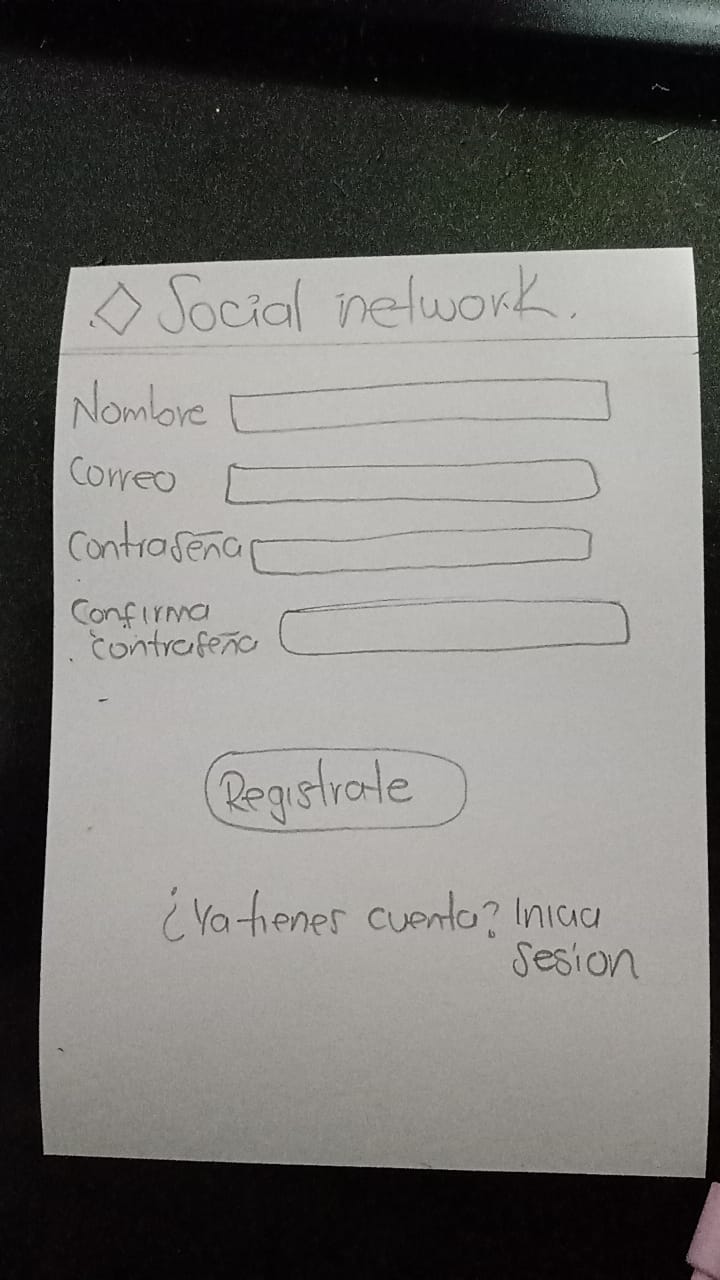 Social network.
Nombre
Correo
Contraseña
Confirma
contraseña
Registrate
¿Ya tienes cuenta? Inicia
sesion